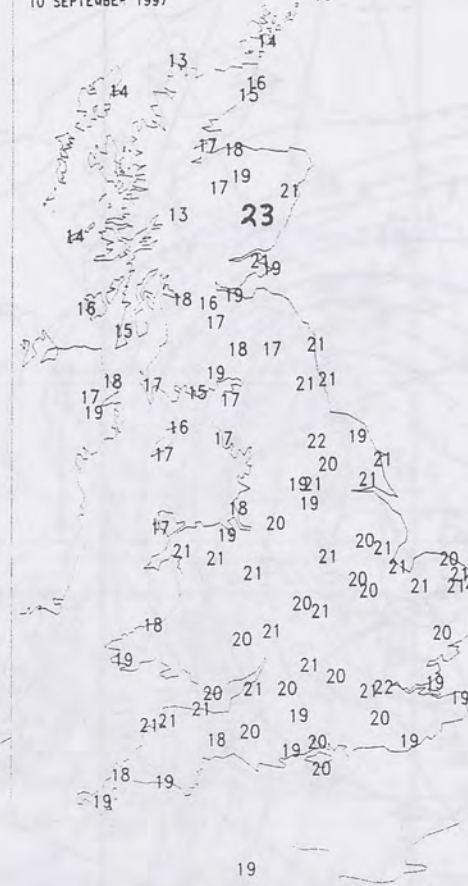 10 SEPTEMBER 1997
14
13
14
16
15
17 18
19
17 21
13 23
14
21
19
18 16 19
16
17
15
18 17 21
19
18 17 21 21
17 15 17
19
16
17 22 19
17
20 21
19 21 21
19
18
17 19 20
20 21
21 21 21 20
21 21
21 20 21 21
20
20 21
18 21 20
20
19 21
20
20 21 20 21 22 19
19
21
21 21 19 20
18 20 20 19
19
20
18 19
19
19